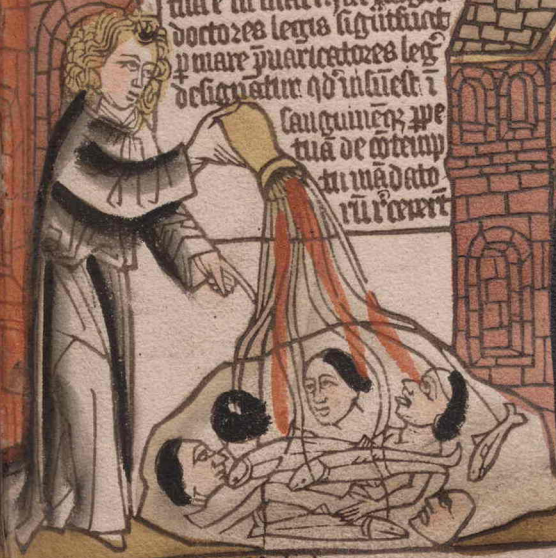 doctores legis significāt
p mare p̄uaricatores leg᷒
designātur qd' insūest ī
sanguinēqꝫ ppe
tuā de cōtemp
tu mādato
rū r'ceperūt